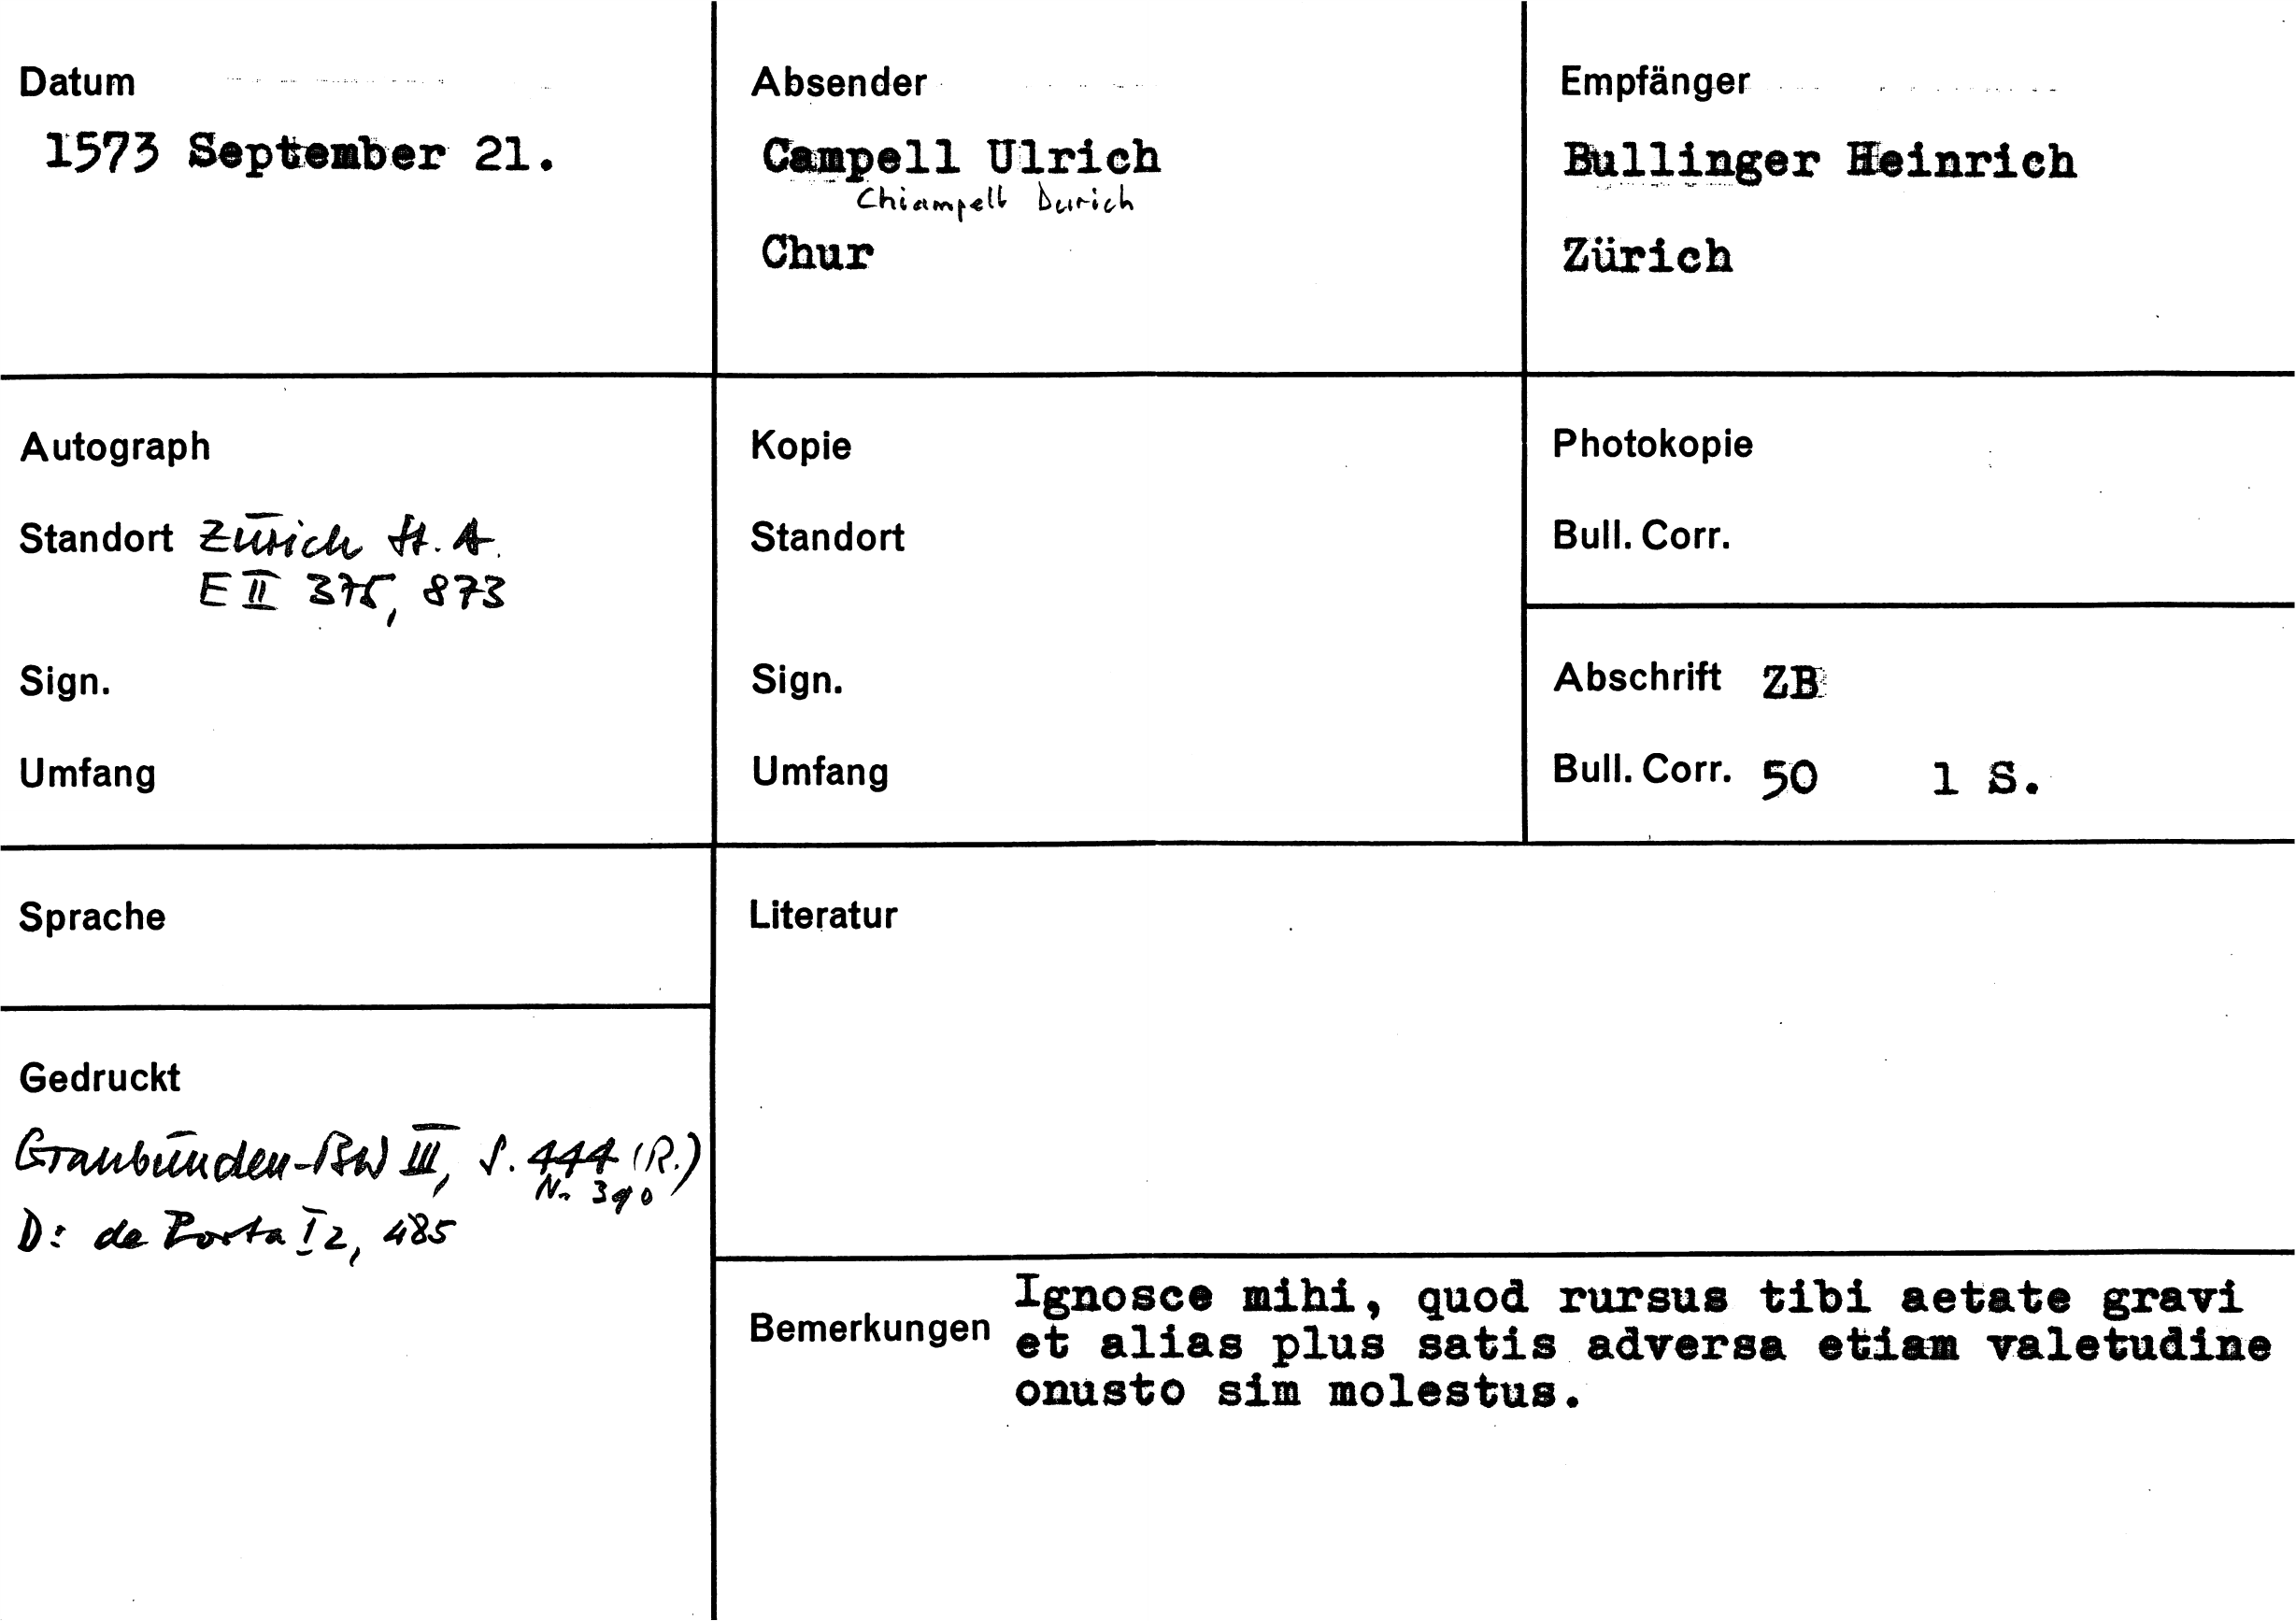 Datum
1573 September 21.
Absender
Campell Ulrich
Chiampell Durich
Chur
Empfänger
Bullinger Heinrich
Zürich
Autograph
Standort Zürich St. A.
E II 375, 873
Sign.
Umfang
Kopie
Standort
Sign.
Umfang
Photokopie
Bull. Corr.
Abschrift ZB
Bull. Corr. 50 1 S.
Sprache
Literatur
Gedruckt
Graubünden-BW III, S. 444 (R.)
Nr. 390
D: de Porta I 2, 485
Bemerkungen
Ignosce mihi, quod rursus tibi aetate gravi
et alias plus satis adversa etiam valetudine
onusto sim molestus.